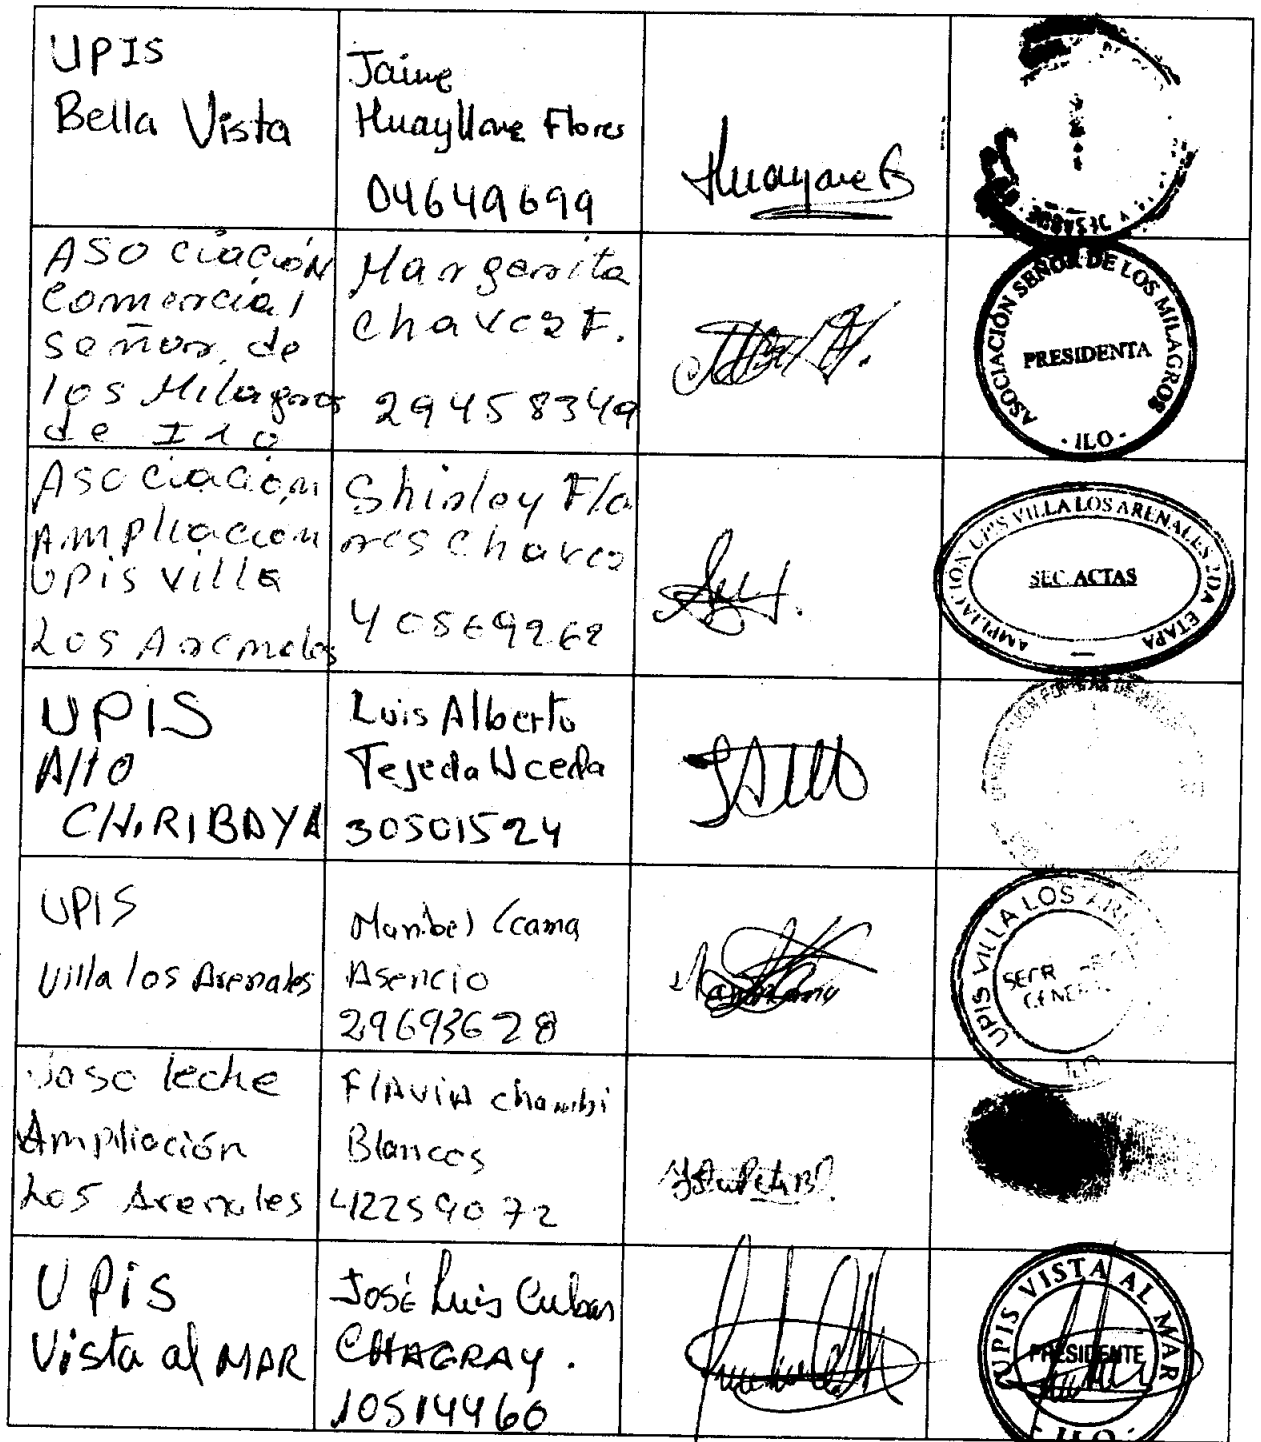 UPIS
Bella Vista
Jaime
Huayllave Flores
04649699
ASOciación
Comercial
señor de
los Milagros
de Ilo
Margarita
Chavez F.
29458349
ASOCIACIÓN SEÑOR DE LOS MILAGROS
PRESIDENTA
- ILO -
Asociación
Ampliación
Upis villa
Los Arenales
Shirley Flo
res Chavez
40569262
AMPLIACIÓN UPIS VILLA LOS ARENALES 2DA ETAPA
SEC. ACTAS
UPIS
Alto
CHIRIBAYA
Luis Alberto
Tejeda Uceda
30501524
UPIS
Villa los Arenales
Maribel Ccama
Asencio
29693628
UPIS VILLA LOS
ILO
Vaso leche
Ampliación
Los Arenales
FLAVIA Chambi
Blancos
42259072
UPis
Vista al MAR
José Luis Cubas
CHAGRAY.
10514460
UPIS VISTA AL MAR
PRESIDENTE
- ILO -